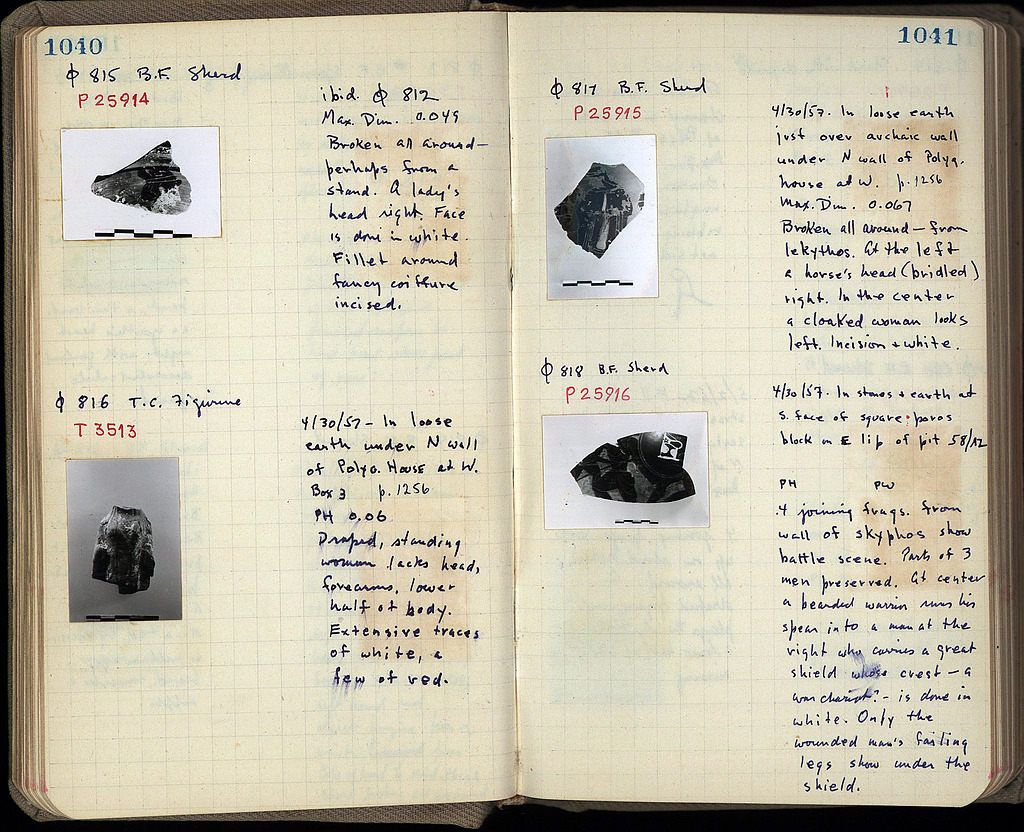 1040
Φ 815 B.F. Sherd
P 25914
ibid. Φ 812
Max. Dim. 0.049
Broken all around—
perhaps from a
stand. A lady's
head right. Face
is done in white.
Fillet around
fancy coiffure
incised.
Φ 816 T.C. Figurine
T 3513
4/30/57 - In loose
earth under N wall
of Polyg. House at W.
Box 3 p. 1256
PH 0.06
Draped, standing
woman lacks head,
forearms, lower
half of body.
Extensive traces
of white, a
few of red.
1041
Φ 817 B.F. Sherd
P 25915
4/30/57. In loose earth
just over archaic wall
under N wall of Polyg.
house at W. p. 1256
Max. Dim. 0.067
Broken all around — from
lekythos. At the left
a horse's head (bridled)
right. In the center
a cloaked woman looks
left. Incision + white.
Φ 818 B.F. Sherd
P 25916
4/30/57. In stones + earth at
S. face of square poros
block on E lip of pit 58/ΛΖ
PH PW
4 joining frags. from
wall of skyphos show
battle scene. Parts of 3
men preserved. At center
a bearded warrior runs his
spear into a man at the
right who carries a great
shield whose crest — a
war chariot? - is done in
white. Only the
wounded man's failing
legs show under the
shield.